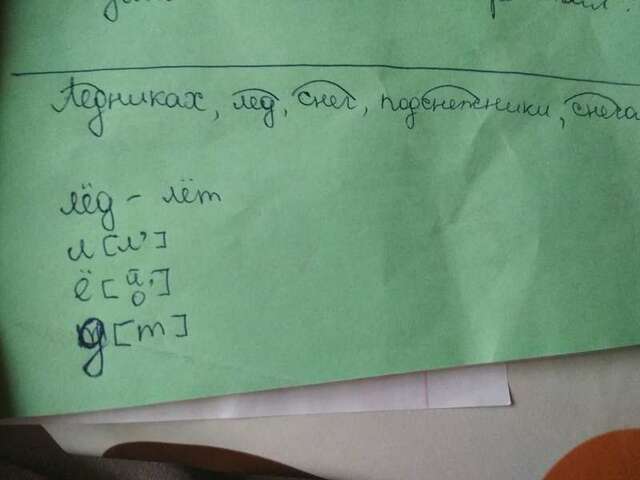 Ледниках, лед, снег, подснежники, снега
лёд - лёт
л [л']
ё [й' о]
д [т]